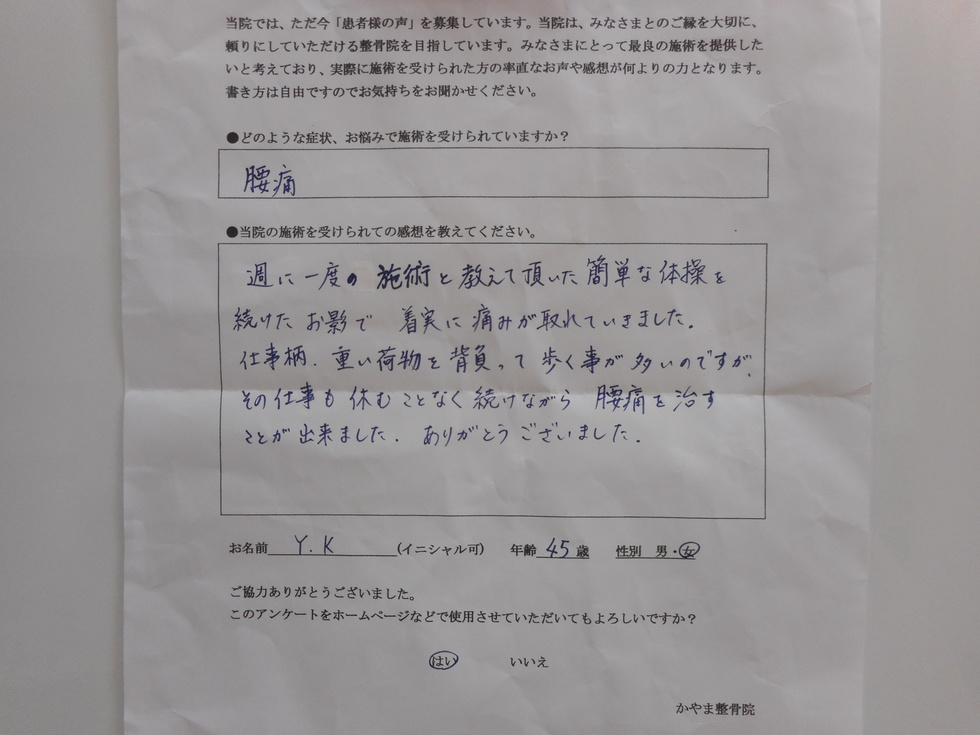 当院では、ただ今「患者様の声」を募集しています。当院は、みなさまとのご縁を大切に、
頼りにしていただける整骨院を目指しています。みなさまにとって最良の施術を提供した
いと考えており、実際に施術を受けられた方の率直なお声や感想が何よりの力となります。
書き方は自由ですのでお気持ちをお聞かせください。
●どのような症状、お悩みで施術を受けられていますか?
腰痛
●当院の施術を受けられての感想を教えてください。
週に一度の施術と教えて頂いた簡単な体操を
続けたお影で 着実に痛みが取れていきました。
仕事柄、重い荷物を背負って歩く事が多いのですが、
その仕事も休むことなく続けながら 腰痛を治す
ことが出来ました。ありがとうございました。
お名前 Y.K (イニシャル可) 年齢 45 歳 性別 男・女
ご協力ありがとうございました。
このアンケートをホームページなどで使用させていただいてもよろしいですか?
はい いいえ
かやま整骨院